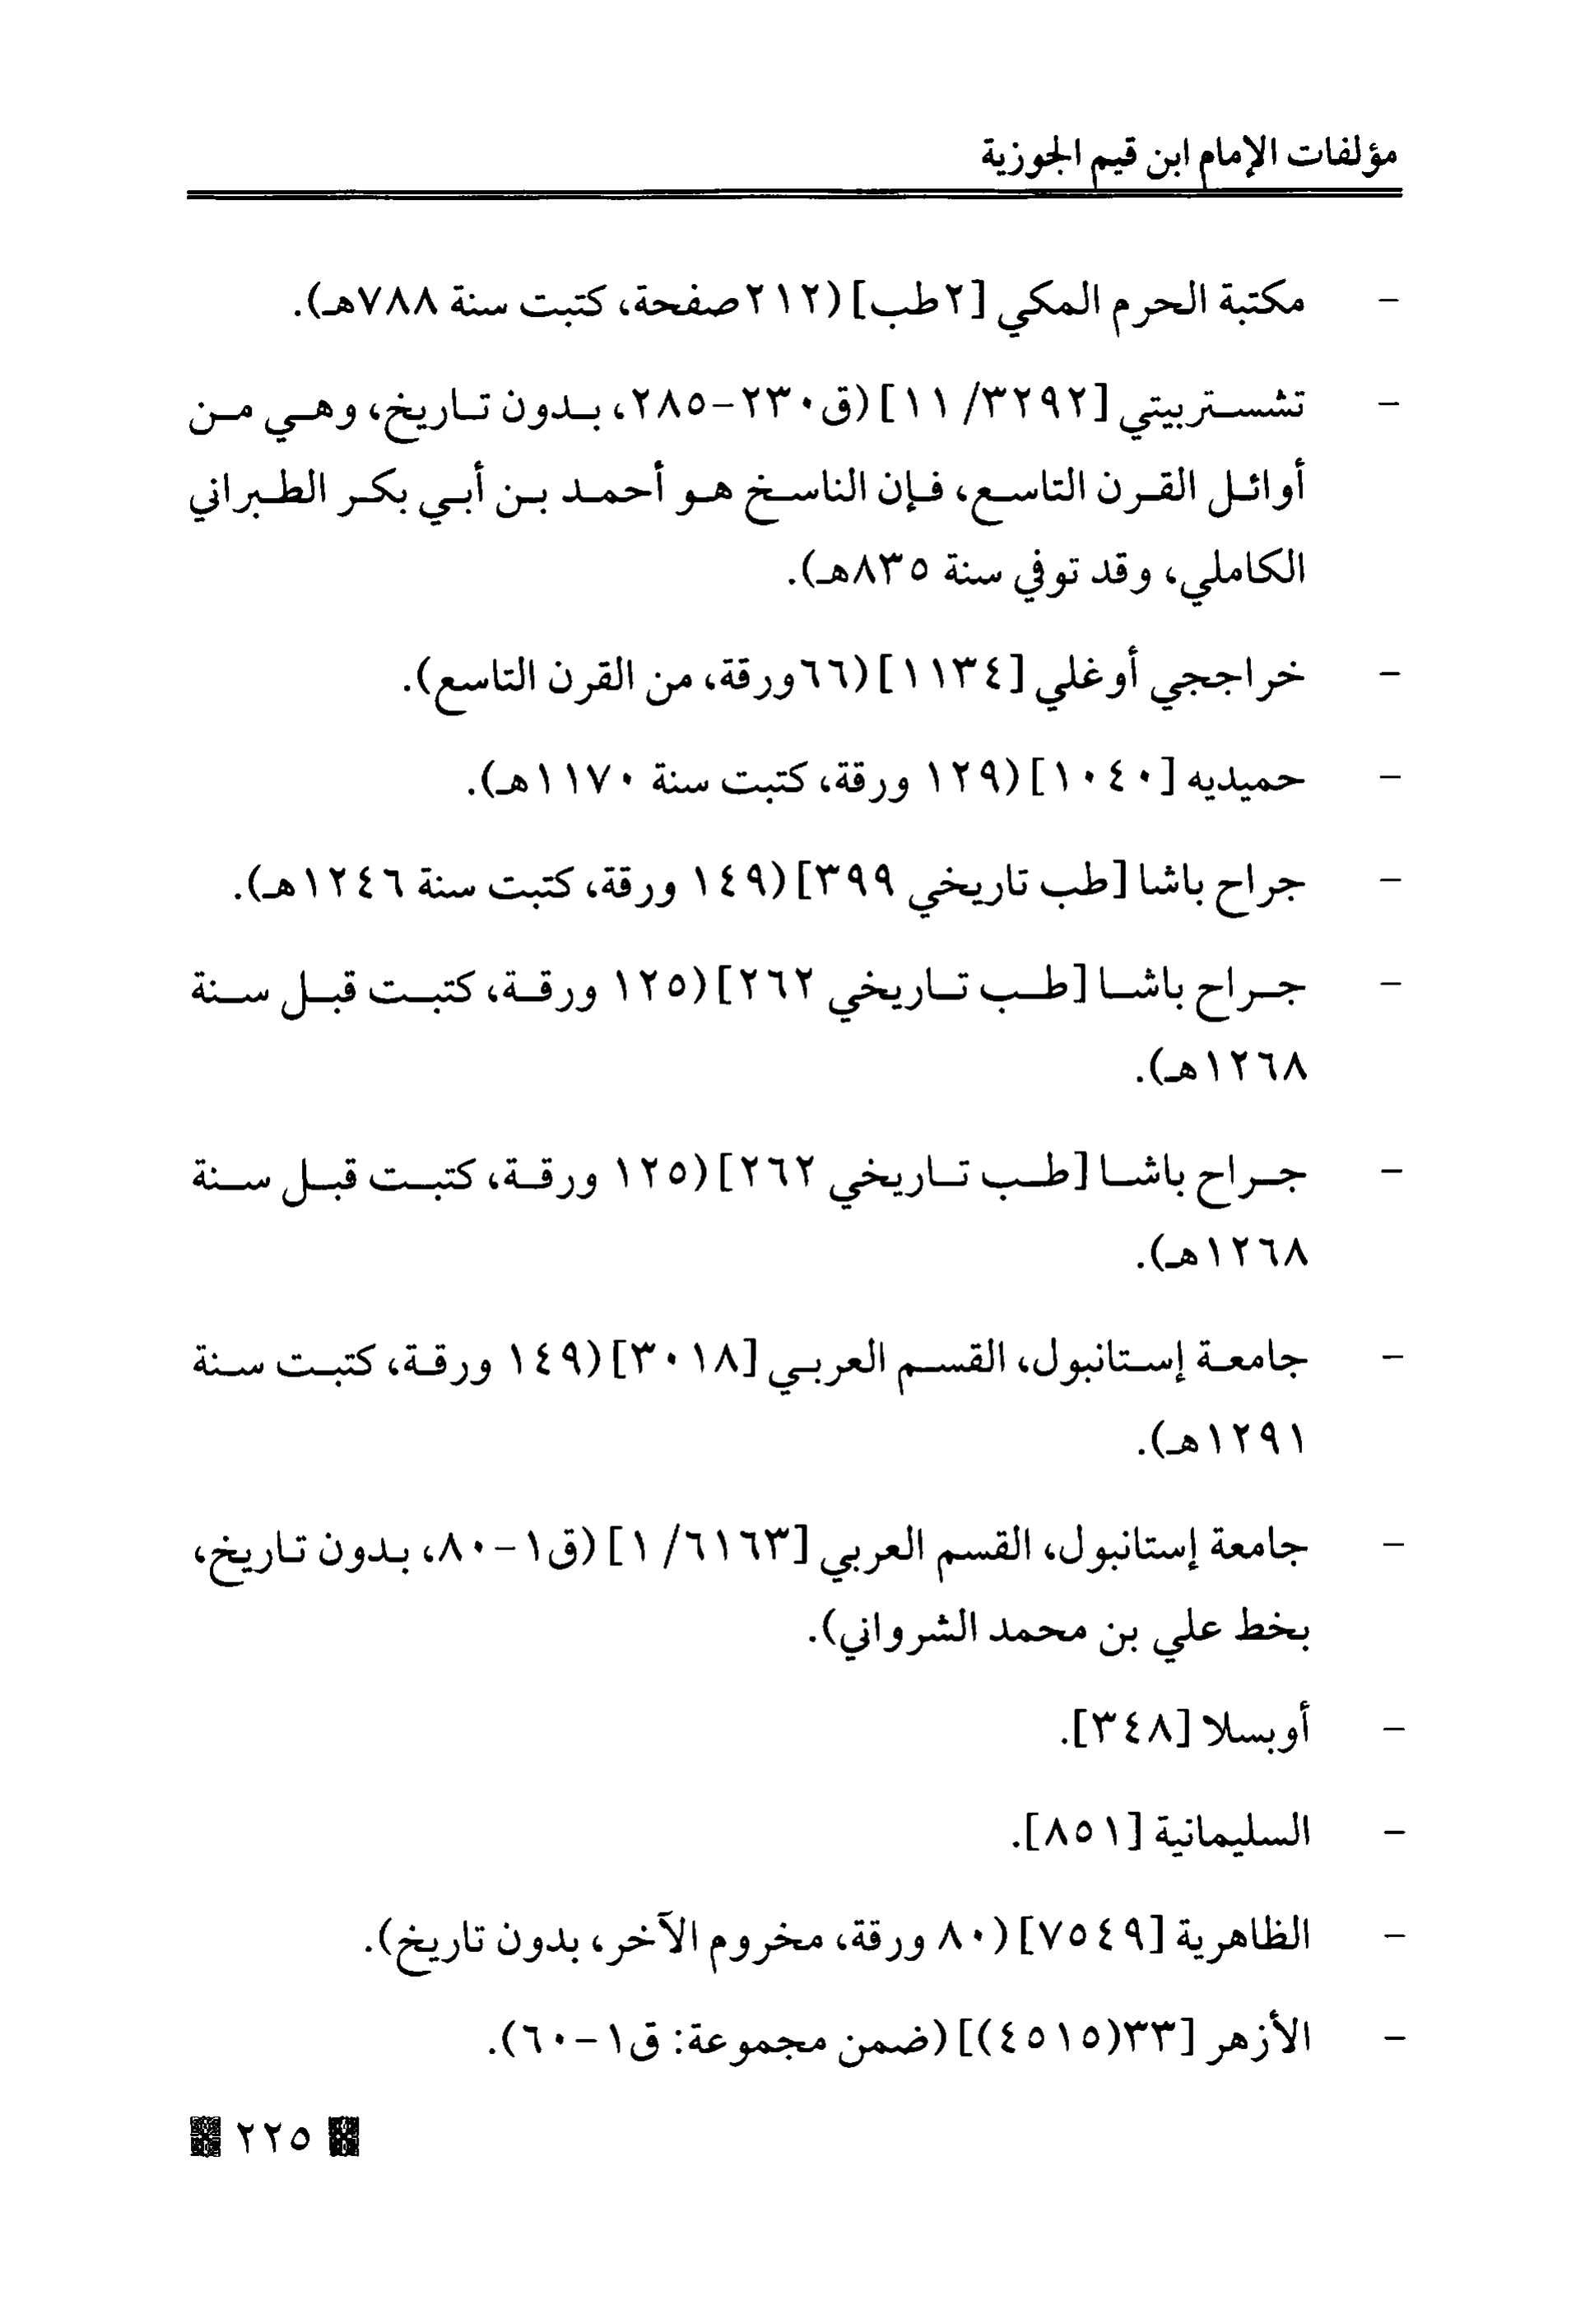 مؤلفات الإمام ابن قيم الجوزية
- مكتبة الحرم المكي [٢طب] (٢١٢صفحة، كتبت سنة ٧٨٨هـ).
- تشستربيتي [٣٢٩٢/ ١١] (ق٢٣٠-٢٨٥، بدون تاريخ، وهي من
أوائل القرن التاسع، فإن الناسخ هو أحمد بن أبي بكر الطبراني
الكاملي، وقد توفي سنة ٨٣٥هـ).
- خراججي أوغلي [١١٣٤] (٦٦ورقة، من القرن التاسع).
- حميديه [١٠٤٠] (١٢٩ ورقة، كتبت سنة ١١٧٠هـ).
- جراح باشا [طب تاريخي ٣٩٩] (١٤٩ ورقة، كتبت سنة ١٢٤٦هـ).
- جراح باشا [طب تاريخي ٢٦٢] (١٢٥ ورقة، كتبت قبل سنة
١٢٦٨هـ).
- جراح باشا [طب تاريخي ٢٦٢] (١٢٥ ورقة، كتبت قبل سنة
١٢٦٨هـ).
- جامعة إستانبول، القسم العربي [٣٠١٨] (١٤٩ ورقة، كتبت سنة
١٢٩١هـ).
- جامعة إستانبول، القسم العربي [٦١٦٣/ ١] (ق١-٨٠، بدون تاريخ،
بخط علي بن محمد الشرواني).
- أوبسلا [٣٤٨].
- السليمانية [٨٥١].
- الظاهرية [٧٥٤٩] (٨٠ ورقة، مخروم الآخر، بدون تاريخ).
- الأزهر [٣٣(٤٥١٥)] (ضمن مجموعة: ق١-٦٠).
٢٢٥